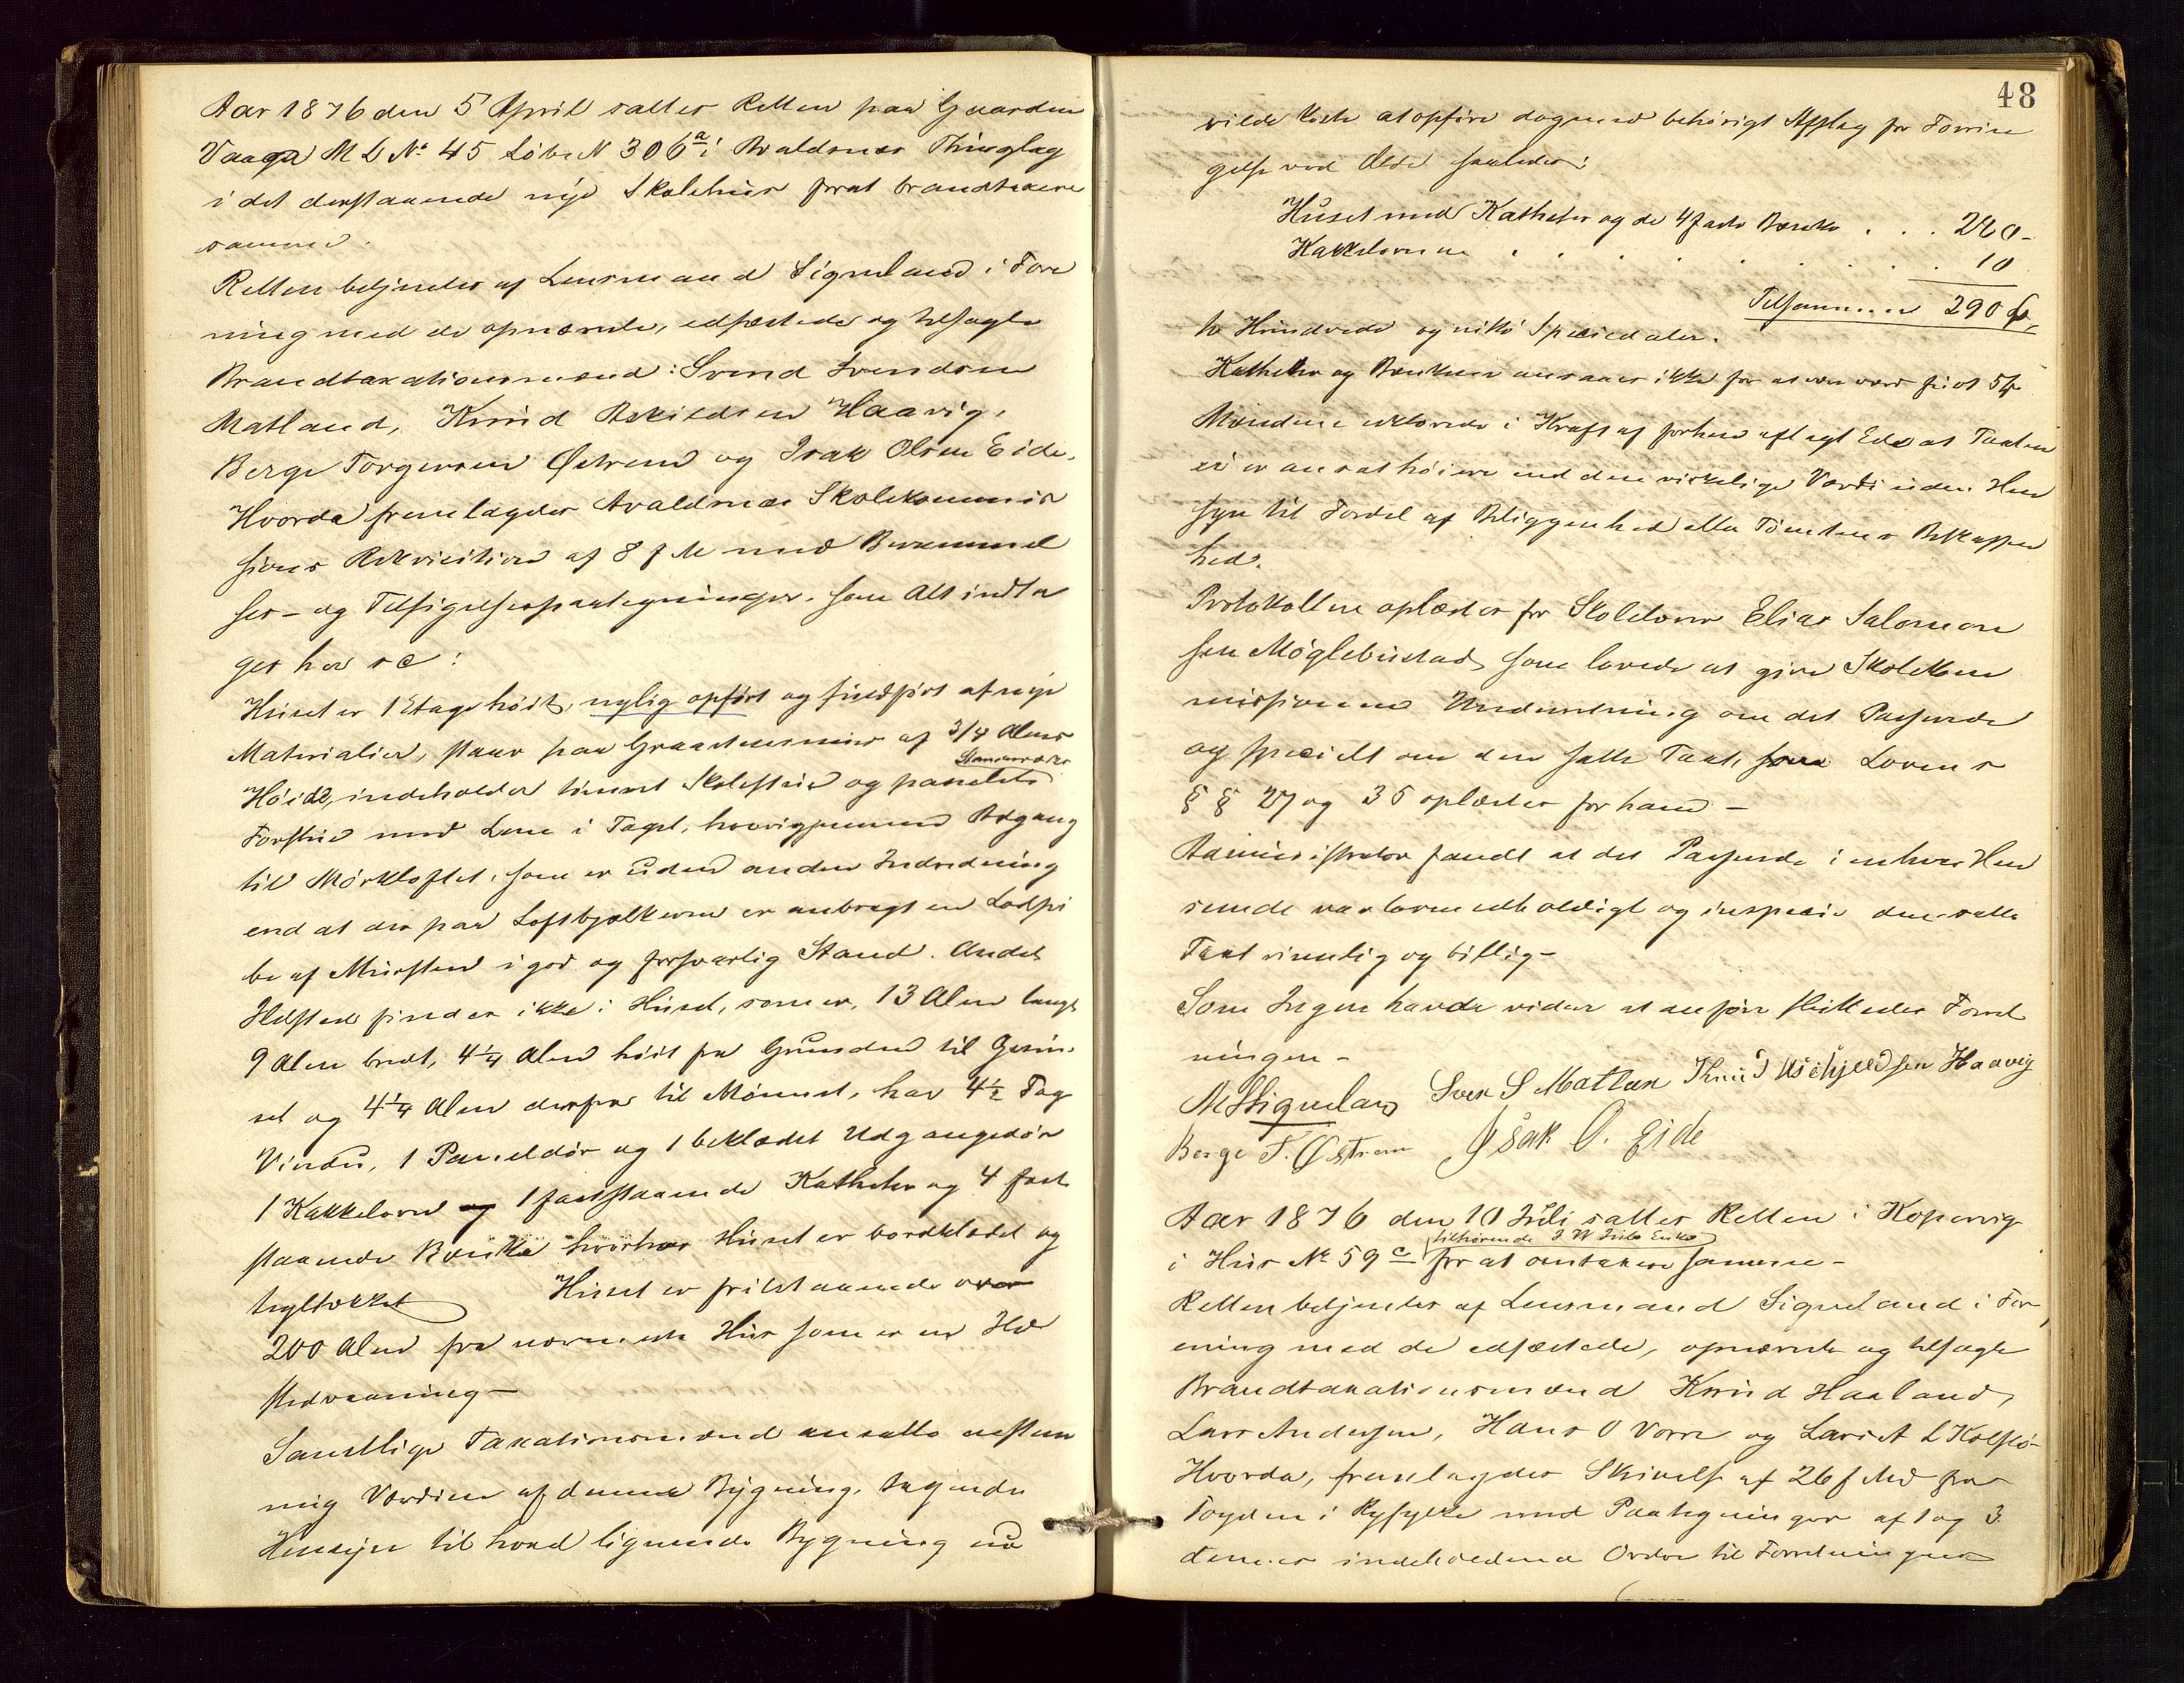 Aar 1876 den 5 April sattes Retten paa Gaarden
Vaage M L No 45 Løbe N 306a i Avaldsnes Thinglag
i det derstaaende nye Skolehus for at brandtaxere
samme.
Retten betjentes af Lensmand Signeland i Fore
ning med de opnævnte, edfæstede og tilsagte
Brandtaxationsmænd: Svend Svendsen
Matland, Knud Askildsen Haavig,
Berge Torgersen Østrem og Isak Olsen Eide.
Hvorda fremlagdes Avaldsnes Skolekommis
sions Rekvisition af 8 f M med Berammel
ses- og Tilsigelsespaategninger, som Alt indta
ges her sc:
Huset er 1 Etage høit, nylig opført og indført af nye
Materialier, staar paa Graastensmur af 3/4 Alens
Høide, indeholder tømret Skolestue og panelet
Forstue med Lem i Taget, hvorigjennem Adgang
til Mørkloftet, som er uden anden Indredning
end at der paa Loftbjælkerne er anbragt en Lodpi
be af Mursten i god og forsvarlig Stand. Andet
Ildsted findes ikke i Huset, som er 13 Alen langt
9 Alen bredt, 4 1/4 Alen høit fra Grunden til Gesim
set og 4 1/4 Alen derfra til Mønnet, har 4 1/2 Fag
Vindu, 1 Paneldør og 1 beklædet Udgangsdør
1 Kakkelovn og 1 faststaaende Katheder og 4 fast
staaende Bænke hvorhos Huset er bordklædet og
tegltækket Huset er fritstaaende over
200 Alen fra nærmeste Hus som er en Ild
stedvaaning-
Samtlige Taxationsmænd ansatte eenstem
mig Værdien af denne Bygning, tagende
Hensyn til hvad lignende Bygning nu
48
vilde koste at opføre dog med behørigt Afslag for Forrin
gelse ved Ælde saaledes:
Huset med Katheder og de 4 faste Bænke . . . 280 -
Kakkelovnen . . . . . . . . 10
Tilsammen 290
to Hundrede og nitti Speciedaler.
Katheder og Bænkene ansaaes ikke for at være værd
Mændene erklærede i Kraft af forhen aflagt Ed at Taxten
ei er ansat høiere end den virkelige Værdi uden Hen
syn til Fordel af Beliggenhed eller Tomtens Beskaffen
hed.
Protokollen oplæstes for Skolelærer Elias Salomon
sen Møglebustad, som lovede at give Skolekom
missionen Underretning om det Passerede
og specielt om den satte Taxt, Lovens
§ § 27 og 35 oplæstes for ham -
Administrator fandt at det Passerede i enhver Hen
seende var lovmedholdigt og inspecie den satte
Taxt rimelig og billig -
Som Ingen havde videre at anføre sluttedes Forret
ningen -
Signeland Sven S Matlan Knud Aschjeldsen Haavig
Berge T. Østrem Isak O. Eide
Aar 1876 den 10 Juli sattes Retten i Kopervig
tilhørende Enke
i Hus No 59 c for at omtaxere samme -
Retten betjentes af Lensmand Signeland i For
ening med de edfæstede, opnævnte og tilsagte
Brandtaxationsmænd Knud Haaland,
Lars Andersen, Hans O Vorre og
Hvorda, fremlagdes Skrivelse af 26 f Md fra
Fogden i Ryfylke med Paategninger af 1 og 3
dennes indeholdende Ordre til Forretningens